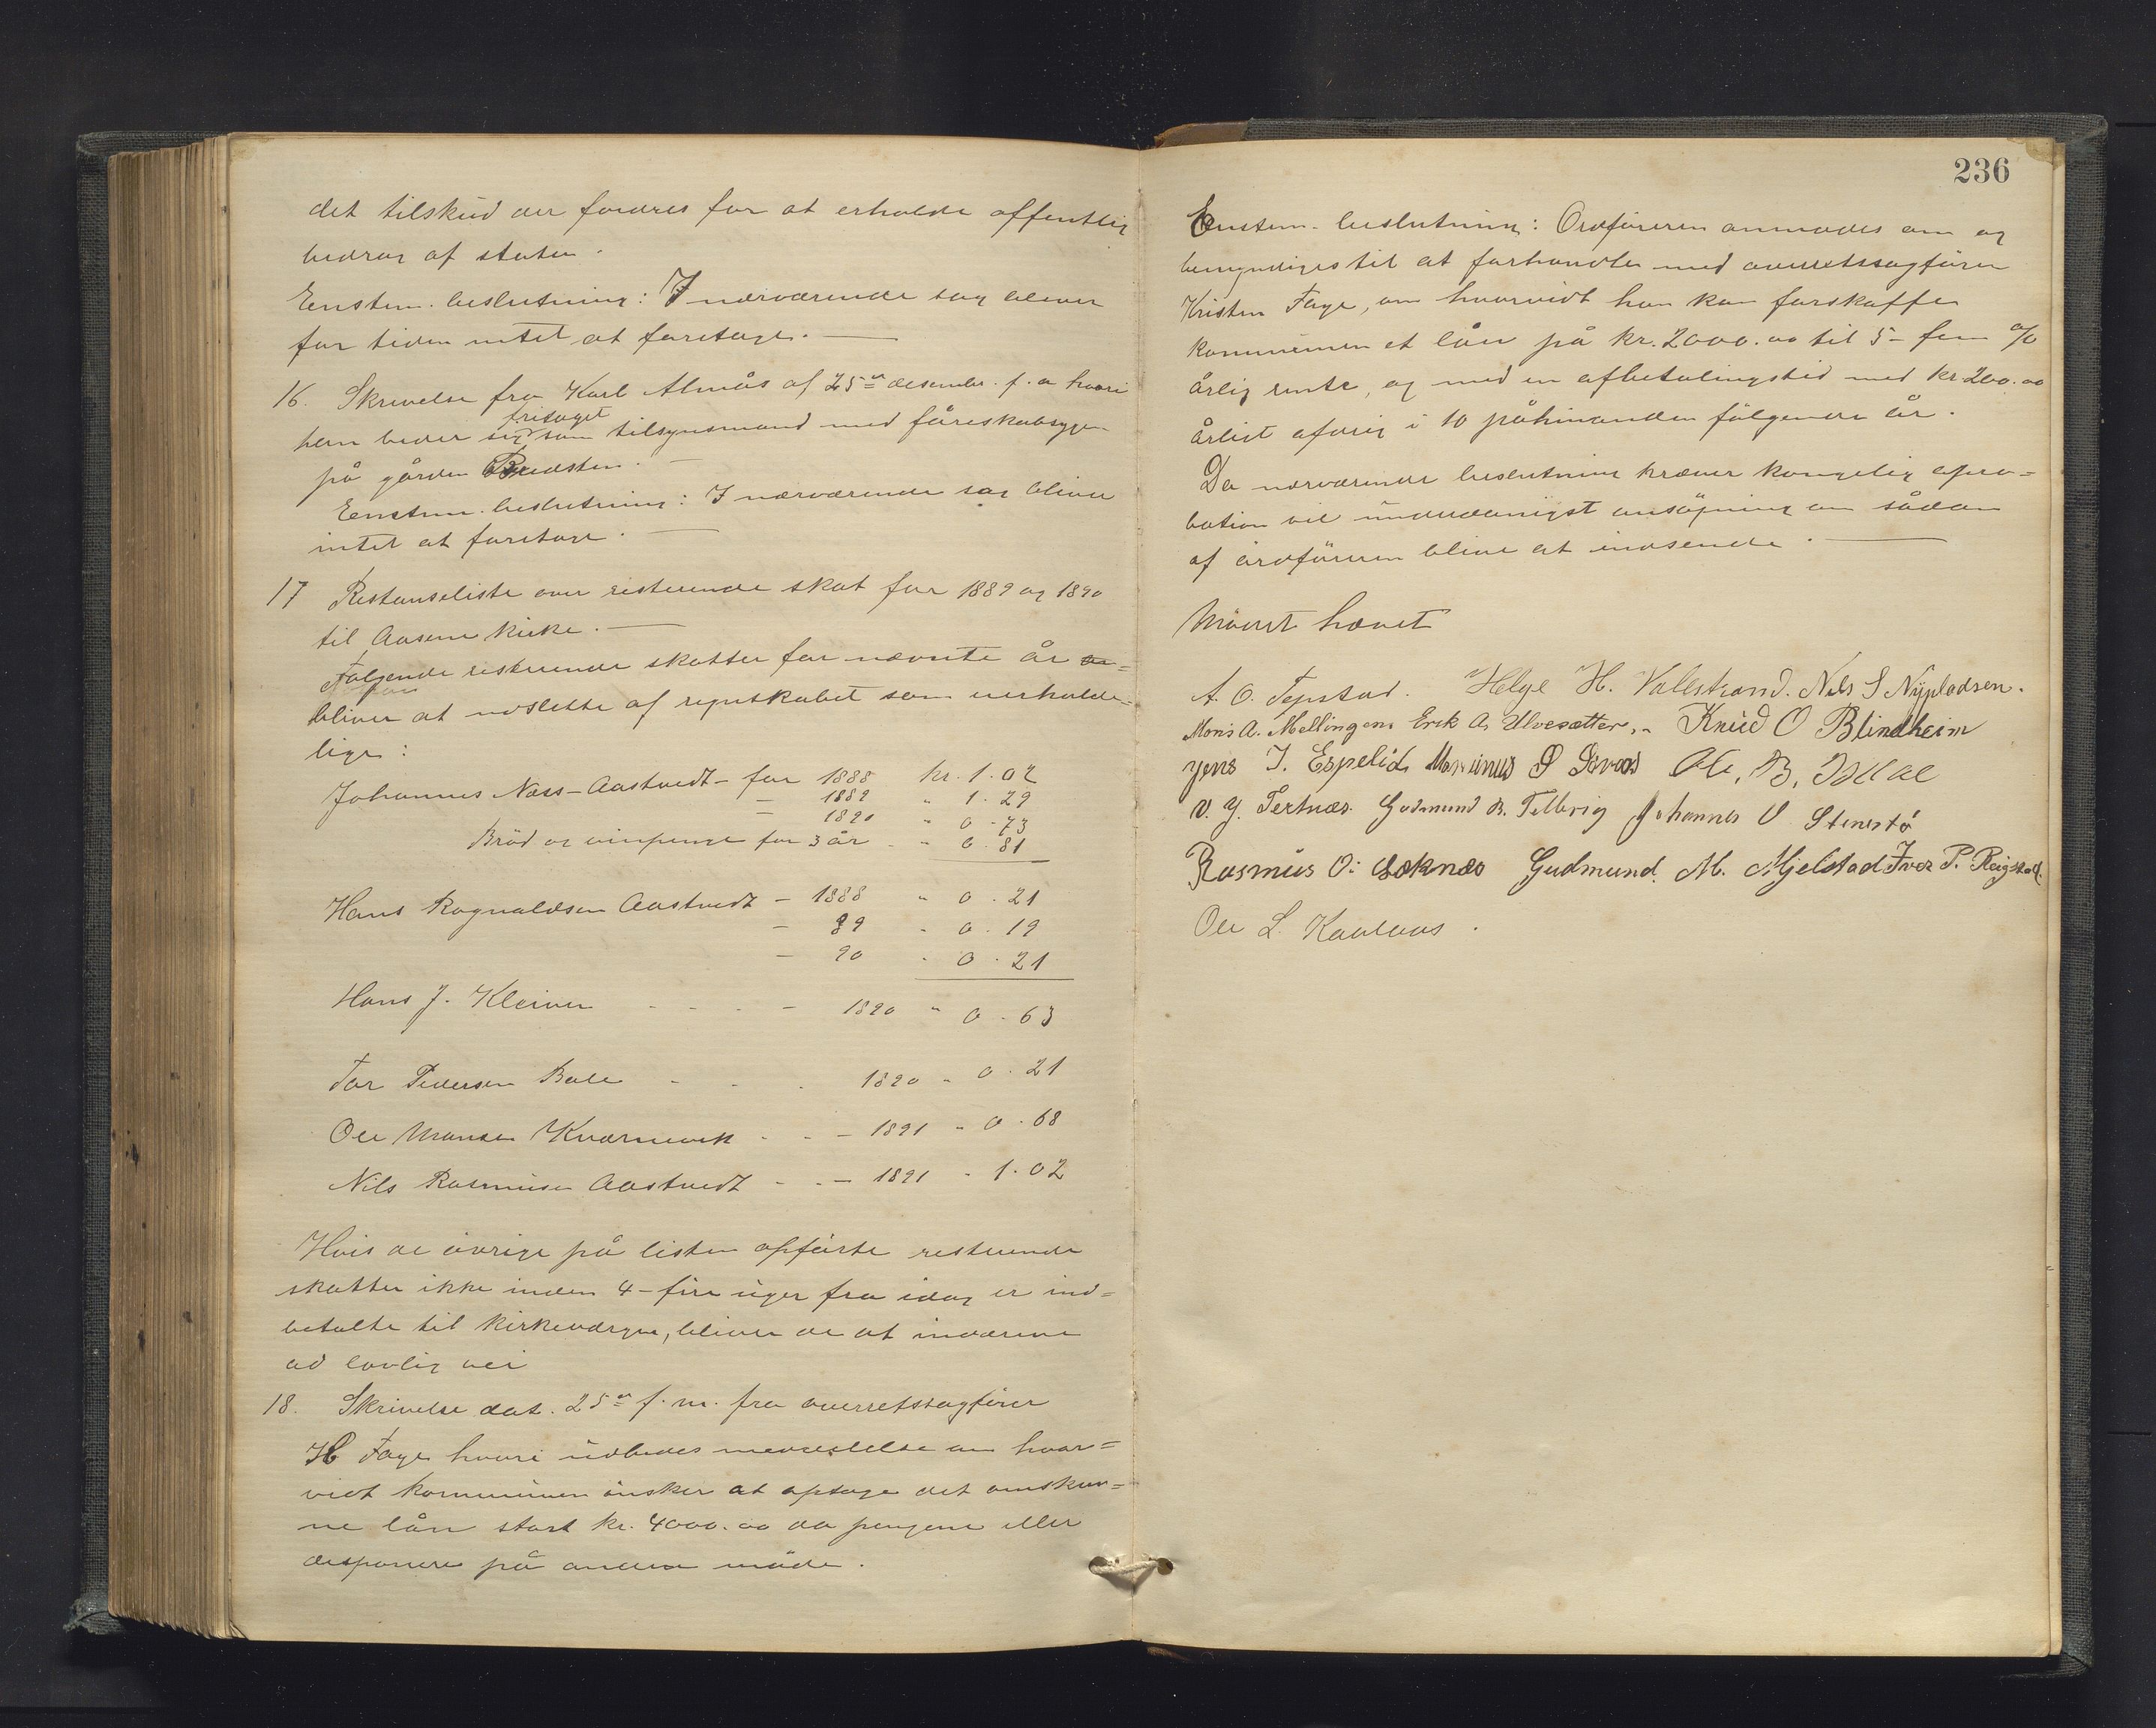 det tilskud der fordres for at erholde offentlig
bedrag af staten.
Enstem. beslutning: I nærværende sag bliver
for tiden intet at foretage. —
16. Skrivelse fra Karl Almås af 25de desembr. f. a hvori
han beder sig fritaget som tilsynsmand med fåreskabsygen
på gården Bredsten. —
Enstem. beslutning: I nærværende sag bliver
intet at foretage. —
17 Restanseliste over resterende skat for 1889 og 1890
til Aasene kirke. —
Følgende resterende skatter for nævnte år
bliver at udslette af regnskabet som uerholde-
lige:
Johannes Næss-Aastvedt - for 1888 kr. 1.02
— 1889 " 1.29
— 1890 " 0.73
Brød og vinpenge for 3 år - " 0.81
Hans Ragnvaldsen Aastvedt - 1888 " 0.21
— 89 " 0.19
— 90 " 0.21
Hans J. Kleiven - - - — 1890 " 0.63
Tor Pedersen Bale - - - 1890 " 0.21
Ole Monsen Kvernevik - - — 1891 " 0.68
Nils Rasmusen Aastvedt - - — 1891 " 1.02
Hvis de øvrige på listen opførte resterende
skatter ikke inden 4-fire uger fra idag er ind=
betalte til kirkeværgen, bliver de at inddrive
ad lovlig vei
18. Skrivelse dat. 25de f. m. fra overretssagfører
K Faye hvori udbedes meddelelse om hvor=
vidt kommunen ønsker at optage det omskrev=
ne lån stort kr. 4000.00 da pengene eller
disponeres på anden måde.
236
Enstem. beslutning: Ordføreren anmodes om og
bemyndiges til at forhandle med overretssagfører
Kristen Faye, om hvorvidt han kan forskaffe
kommunen et lån på kr. 2000.00 til 5-fem %
årlig rente, og med en afbetalingstid med kr 200.00
årligt afdrag i 10 påhinanden følgende år.
Da nærværende beslutning kræver kongelig apro=
bation vil underdanigst ansøgning om sådan
af ordføreren blive at indsende. —
Mødet hævet
A. O. Tepstad. Helge H. Vallestrand. Nils S Nypladsen.
Mons A. Mellingen Erik A. Ulvesætter. Knud O Blindheim
Jens J. Espelid Marinus Ole. B.
V. J. Tertnæs. Gudmund B. Tellevig Johannes O Stenestø
Rasmus O: Sæknæs Gudmund. M. Mjelstad Iver P. Reigstad.
Ole L. Kaalaas.